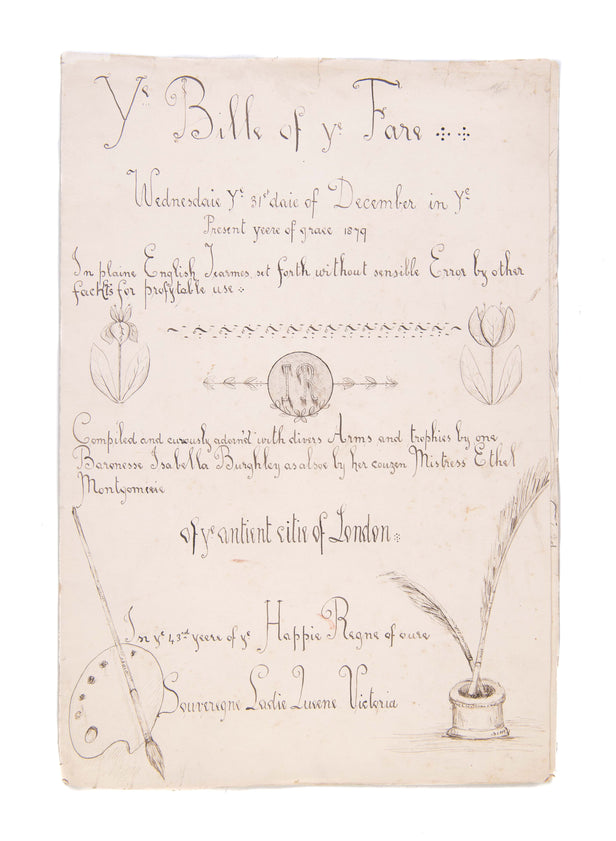 Ye Bille of ye Fare
Wednesdaie Ye 31st daie of December in Ye
Present yeere of grace 1879
In plaine English Tearmes set forth without sensible Error by other
for profytable use
Compiled and curiously adorn'd with divers Arms and trophies by one
Baronesse Isabella Burghley as alsoe by her couzen Mistress Ethel
Montgomerie
of ye antient citie of London
In ye 43rd yeere of ye Happie Regne of oure
Souveregne Ladie Queene Victoria